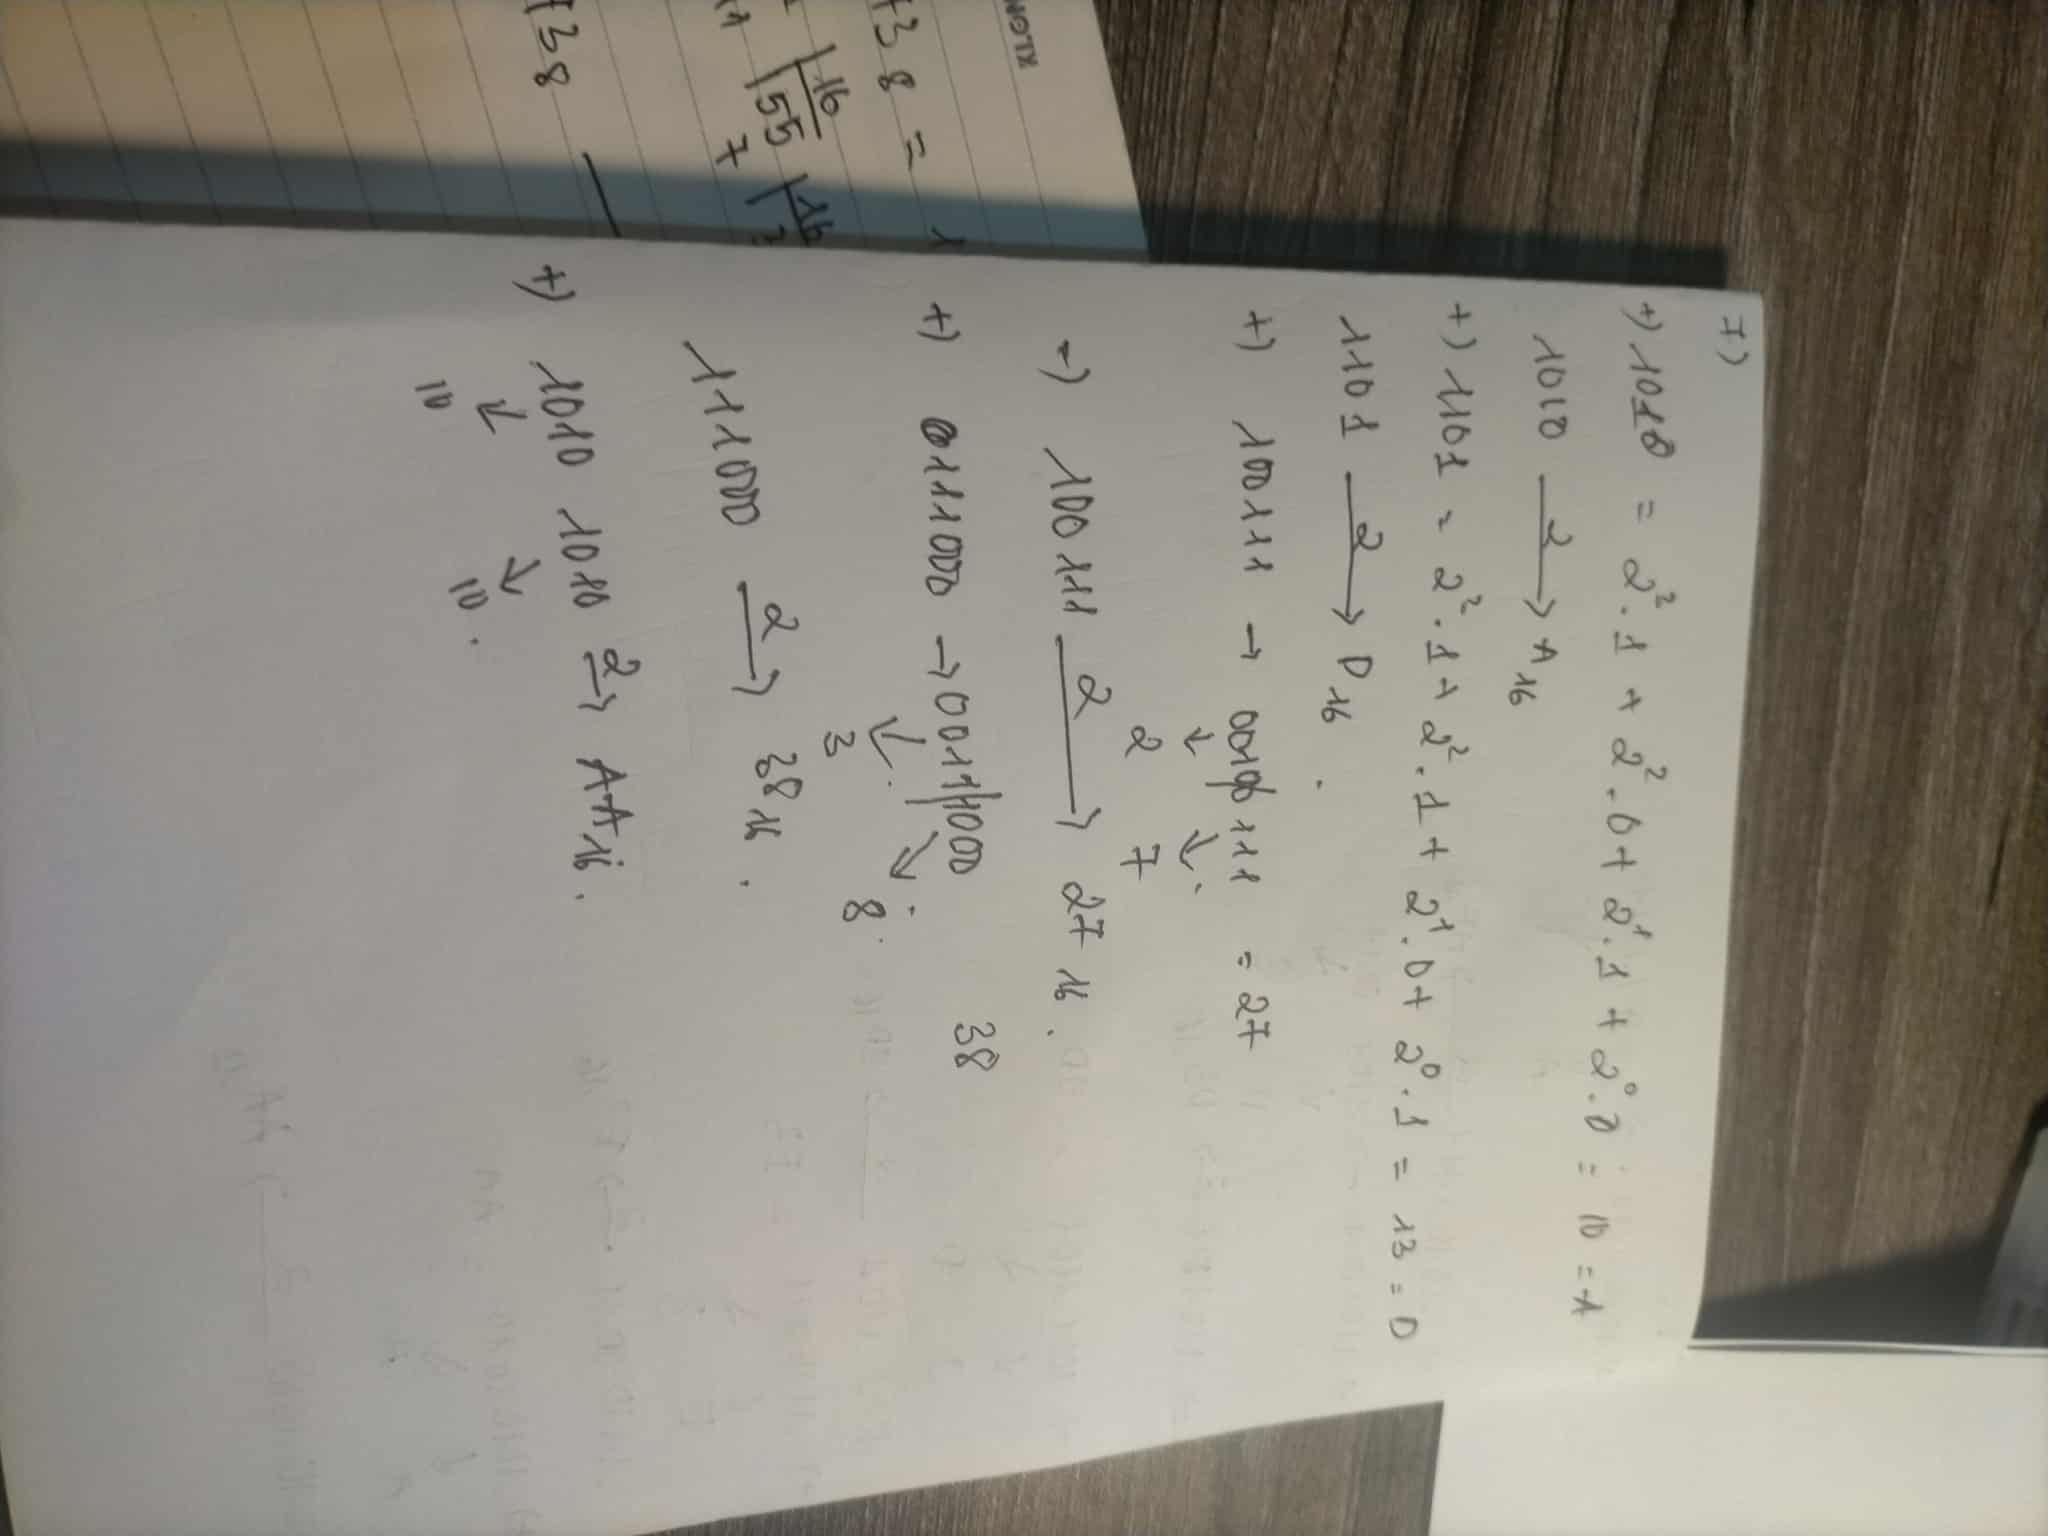 7)
+) 1010 = 2².1 + 2².0 + 2¹.1 + 2⁰.0 = 10 = A
1010 —2→ A₁₆
+) 1101 = 2².1 + 2².1 + 2¹.0 + 2⁰.1 = 13 = D
1101 —2→ D₁₆.
+) 100111 → 0010 0111 = 27
↓ ↓
2 7
-) 100111 —2→ 27 16.
+) 0111000 → 0011|1000 38
↓ ↓
3 8.
111000 —2→ 38 16.
+) 1010 1010 2→ AA 16.
↓ ↓
10 10.
KLONG
738 =
16
55 16
7
738 —